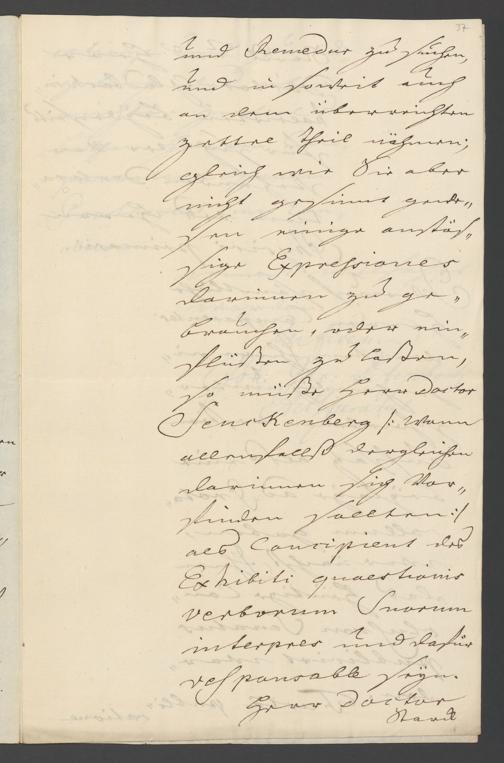 37
und Remedur zu suchen,
und in soweit auch
an dem überreichten
zettel theil nähmen;
gleich wie Sie aber
nicht gesinnt gewe„
sen einige anstös„
sige Expressiones
darinnen zu ge„
brauchen, oder ein„
flüßen zu laßen,
so müße Herr Doctor
Senckenberg /: wann
allenfallß dergleichen
darinnen sich vor„
finden sollten :/
als Concipient des
Exhibiti quaestionis
verborum Suorum
interpres und dafür
responsable seyn.
Herr Doctor